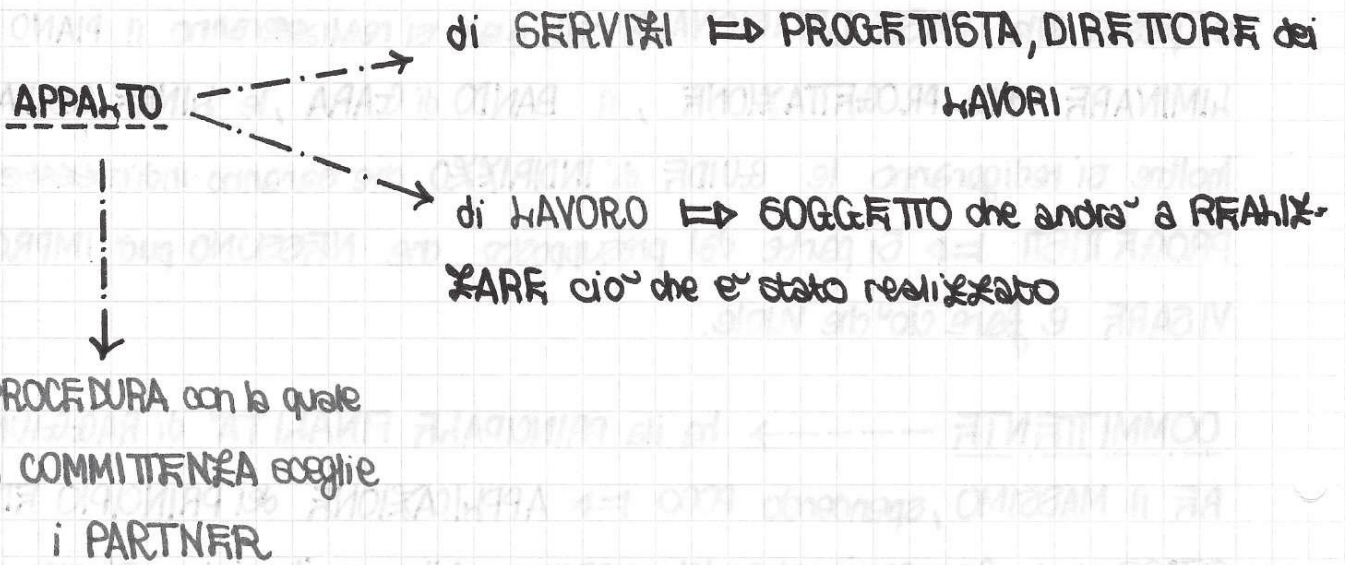 di SERVIZI ⇒ PROGETTISTA, DIRETTORE dei
LAVORI
APPALTO
di LAVORO ⇒ SOGGETTO che andra' a REALIZ-
ZARE cio' che e' stato realizzato
PROCEDURA con la quale
COMMITTENZA sceglie
i PARTNER